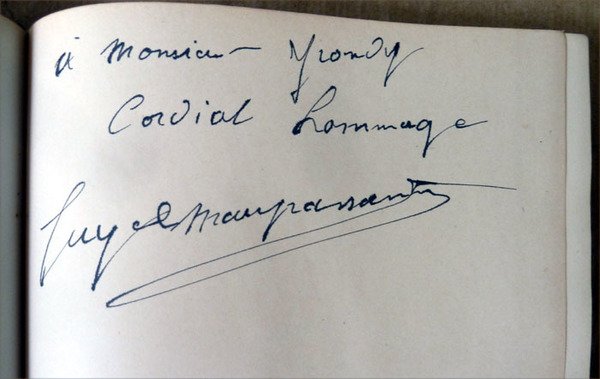 à Monsieur
Cordial hommage
Guy de Maupassant